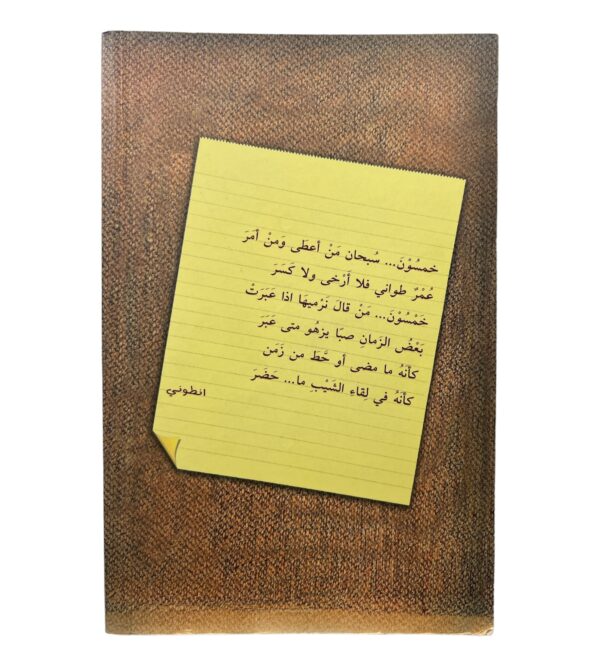 خمسُوْنَ... سُبحان مَنْ أعطَى وَمنْ أمَرَ
عُمْرٌ طواني فلا أَرْخى ولا كَسَرَ
خَمْسُوْنَ... مَنْ قالَ نَرْميهَا اذا عَبَرَتْ
بَعْضُ الزَمانِ صبَا يزهُو متى عَبَرَ
كأنَهُ ما مضى أو حَّط من زَمَن
كأنَهُ في لِقاءِ الشَيْبِ ما... حَضَرَ
انطوني